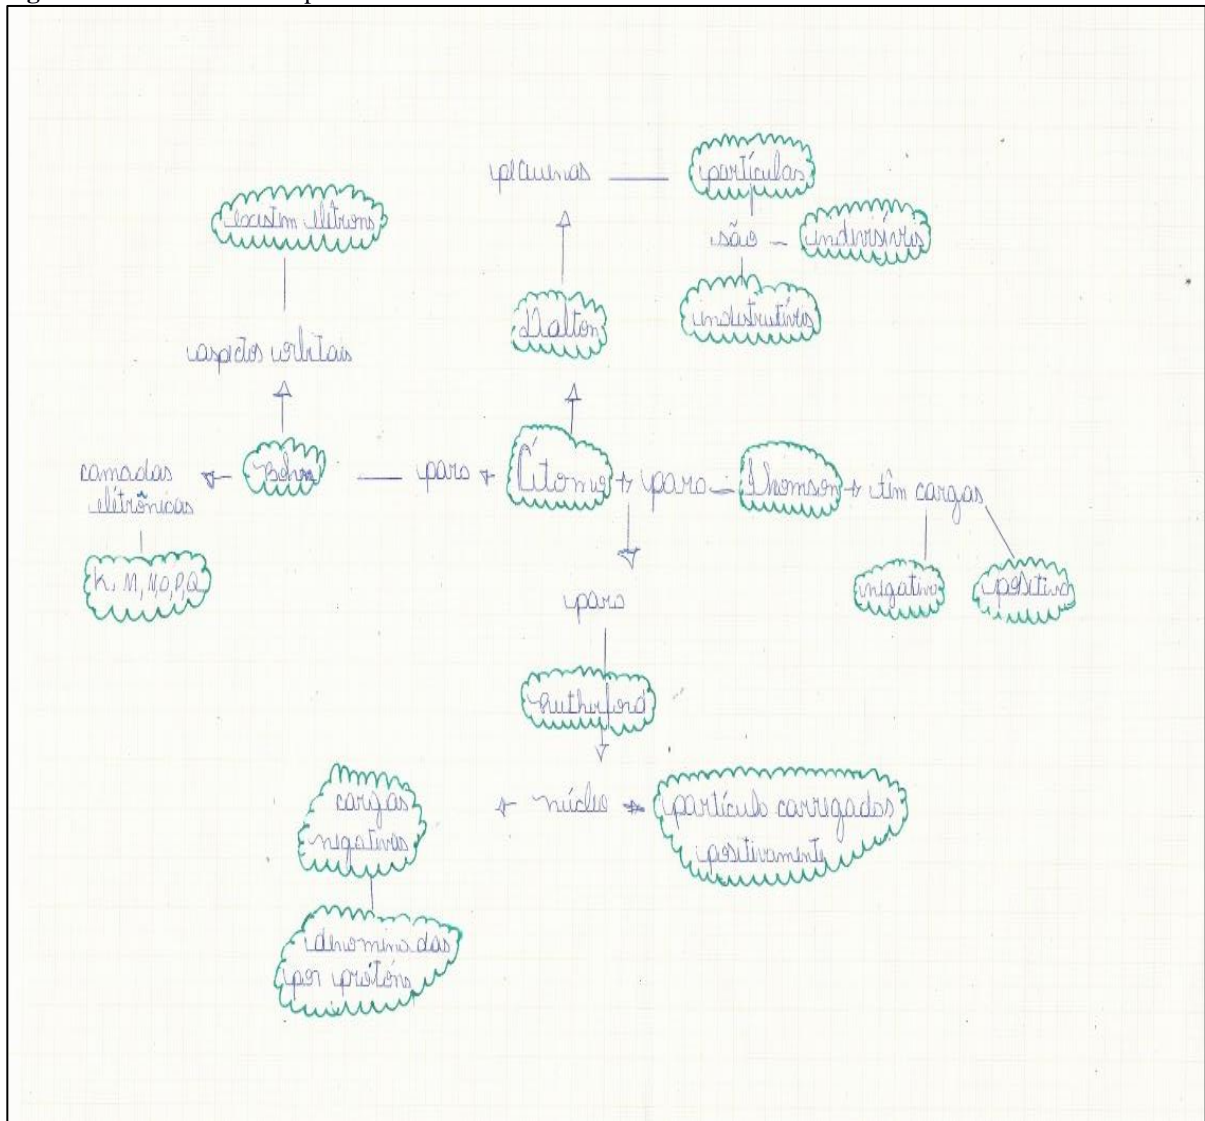 pequenas
partículas
existem elétrons
são
indivisíveis
Dalton
indestrutíveis
aspectos orbitais
camadas
eletrônicas
Bohr
para
Átomo
para
Thomson
têm cargas
K, M, N, O, P, Q
negativa
positiva
para
Rutherford
cargas
negativas
núcleo
partícula carregadas
positivamente
denominadas
por protóns